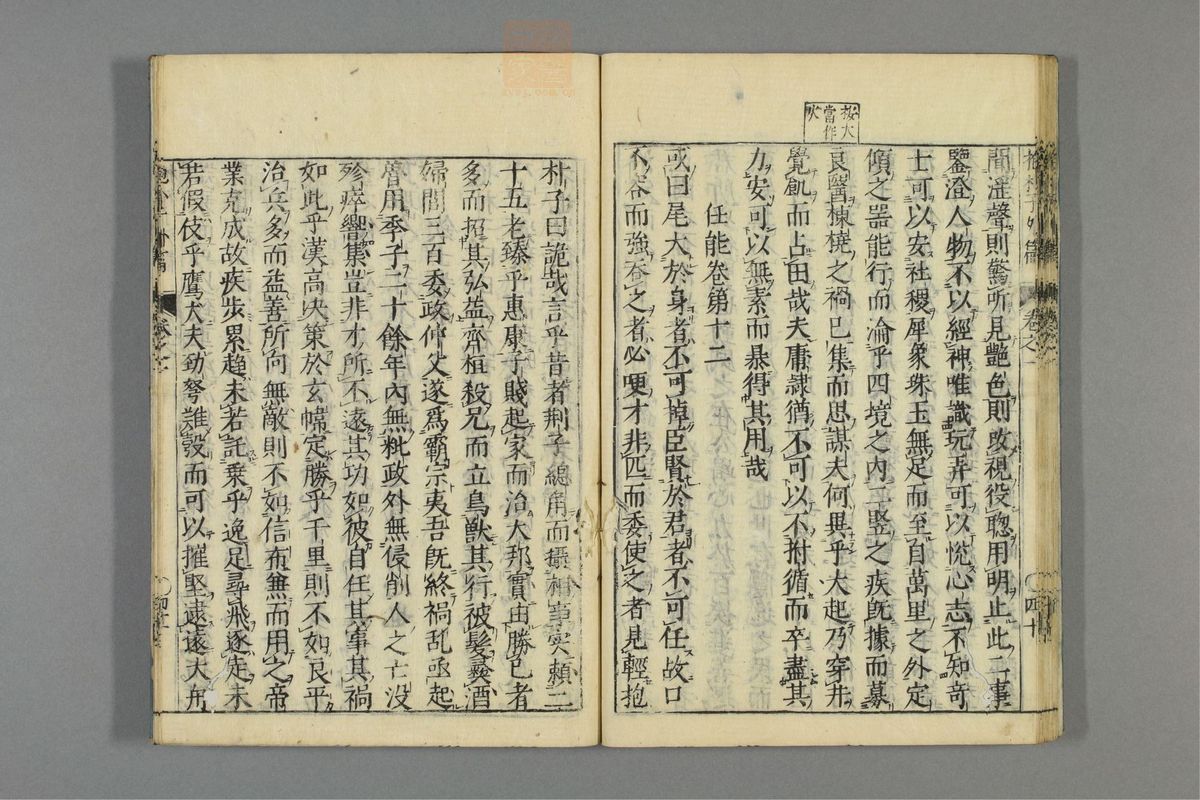 按大
當作
火
間淫聲則驚听見艶色則改視役聰用明止此二事
鑒澄人物不以經神唯識玩弄可以悅心志不知竒
士可以安社稷犀象珠玉無足而至自萬里之外定
傾之器能行而淪乎四境之内二竪之疾既據而募
良醫棟橈之禍已集而思謀夫何異乎大起乃穿井
覺飢而占田哉夫庸隷猶不可以不拊循而卒盡其
力安可以無素而暴得其用哉
任能卷第十二
或曰尾大於身者不可掉臣賢於君者不可任故口
不容而強吞之者必哽才非匹而委使之者見輕抱
朴子曰詭哉言乎昔者荆子總角而攝相事実頼二
十五老臻乎惠康子賤起家而治大邦實由勝己者
多而招其弘益齊桓殺兄而立鳥獸其行被髮彜酒
婦閭三百委政仲父遂爲霸宗夷吾既終禍乱亟起
魯用季子二十餘年内無粃政外無侵削人之亡没
殄瘁響集豈非才所不逮其功如彼自任其事其禍
如此乎漢高决策於玄幃定勝乎千里則不如良平
治兵多而益善所向無敵則不如信布無而用之帝
業克成故疾步累趨未若託乗乎逸足尋飛逐走未
若假伎乎鷹犬夫勁弩難彀而可以摧堅逮遠大舟